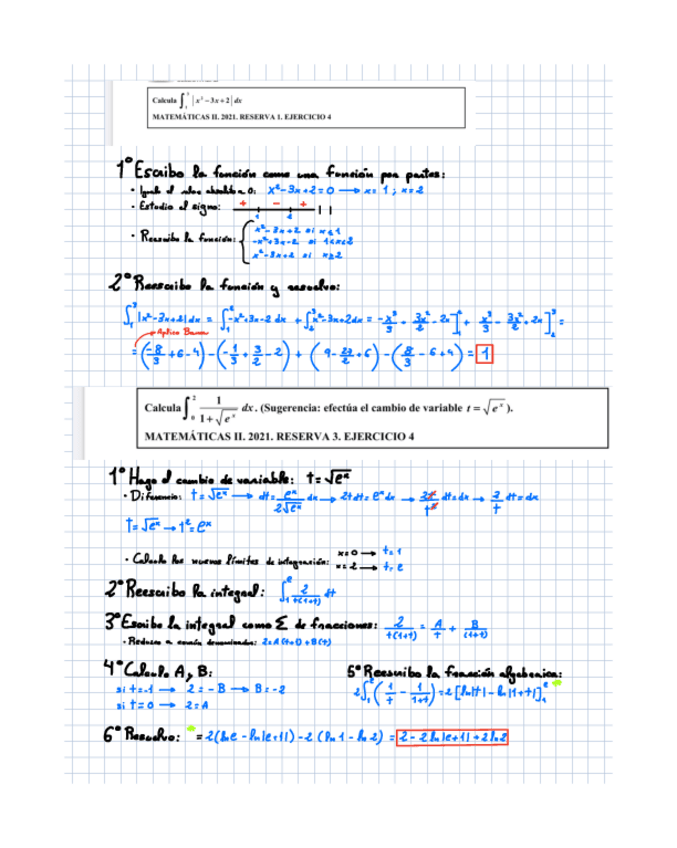 Calcula ∫₁³ |x² − 3x + 2| dx
MATEMÁTICAS II. 2021. RESERVA 1. EJERCICIO 4
1º Escribo la función como una función por partes:
· Igualo el valor absoluto a 0: x²-3x+2=0 → x=1; x=2
· Estudio el signo: + - +
1 2
· Reescribo la función: x²-3x+2 si x≤1
-x²+3x-2 si 1<x<2
x²-3x+2 si x≥2
2º Reescribo la función y resuelvo:
∫₁³ |x²-3x+2| dx = ∫₁² -x²+3x-2 dx + ∫₂³ x²-3x+2 dx = -x³/3 + 3x²/2 - 2x]₁² + x³/3 - 3x²/2 + 2x]₂³ =
Aplico Barrow
= (-8/3 + 6 - 4) - (-1/3 + 3/2 - 2) + (9 - 27/2 + 6) - (8/3 - 6 + 4) = 1
Calcula ∫₀² 1/(1+√eˣ) dx. (Sugerencia: efectúa el cambio de variable t = √eˣ).
MATEMÁTICAS II. 2021. RESERVA 3. EJERCICIO 4
1º Hago el cambio de variable: t=√eˣ
· Diferencio: t=√eˣ → dt = eˣ/2√eˣ dx → 2t dt = eˣ dx → 2t/t² dt = dx → 2/t dt = dx
t=√eˣ → t²=eˣ
· Calculo los nuevos límites de integración: x=0 → t=1
x=2 → t=e
2º Reescribo la integral: ∫₁ᵉ 2/t(1+t) dt
3º Escribo la integral como Σ de fracciones: 2/t(1+t) = A/t + B/(1+t)
· Reduzco a común denominador: 2=A(t+1)+B(t)
4º Calculo A y B:
si t=-1 → 2=-B → B=-2
si t=0 → 2=A
5º Reescribo la fracción algebraica:
2∫₁ᵉ (1/t - 1/1+t) = 2[ln|t| - ln|1+t|]₁ᵉ
6º Resuelvo: = 2(ln e - ln|e+1|) - 2(ln 1 - ln 2) = 2 - 2ln|e+1| + 2ln2